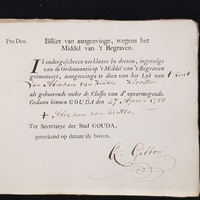 Pro Deo.
Billiet van aangeevinge, wegens het
Middel van 't Begraven.
Ik ondergeschreve verklaere by deesen, ingevolge
van de Ordonnantie op 't Middel van 't Begraven
geëmaneert, aangevinge te doen van het Lyk van 't kint
van Abraham van
als gehoorende onder de Classis van d' onvermogende.
Gedaan binnen GOUDA den 27 April 1789
+ Abraham van
Ter Secretarye der Stad GOUDA,
geteekend op datum als boven.